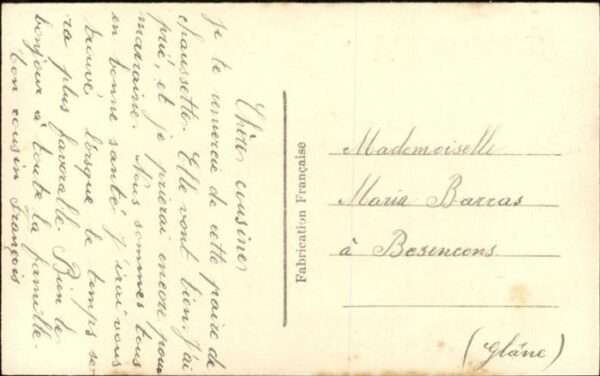 Chère cousine,
Je te remercie de cette paire de
chaussette. Elle vont bien. J'ai
prié, et je prierai encore pour
marraine. Nous sommes tous
en bonne santé, j'irai vous
trouvé lorsque le temps se-
ra plus favorable. Bien le
bonjour à toute la famille.
ton cousin François
Fabrication Française
Mademoiselle
Maria Barras
à Besencens
(Glâne)